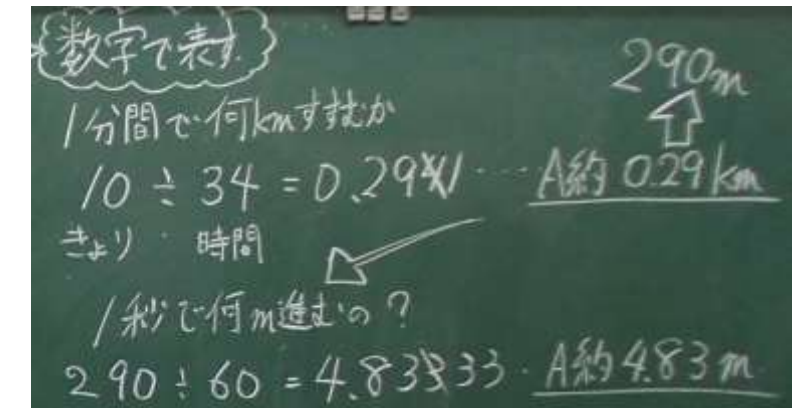 数字で表す
1分間で何kmすすむか
290m
10÷34=0.2941… A約0.29km
きょり 時間
1秒で何m進むの？
290÷60=4.83333. A約4.83m